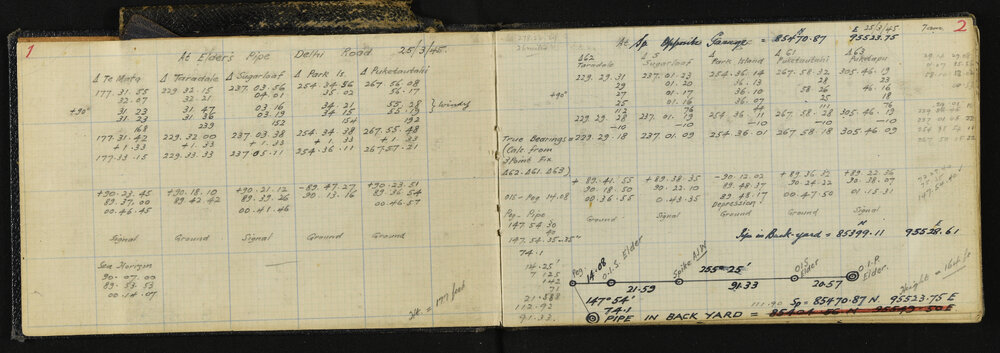 1
At Elder's Pipe Delhi Road 25/3/45
Δ Te Mata Δ Taradale Δ Sugarloaf Δ Park Is. Δ Puketautahi
177.31.55 229.32.15 237.03.56 254.34.56 267.55.08
32.07 32.21 04.01 35.02 56.17
+90° 31.23 31.47 03.16 34.21 55.28 } windy
31.23 31.36 03.19 34.15 55.19
168 239 152 154 192
177.31.42 229.32.00 237.03.38 254.34.38 267.55.48
+1.33 +1.33 +1.33 +1.33 +1.33
177.33.15 229.33.33 237.05.11 254.36.11 267.57.21
+90.23.45 +90.18.10 +90.21.12 -89.47.27 +90.23.51
89.37.00 89.42.42 89.39.26 90.13.16 89.36.54
00.46.45 00.41.46 00.46.57
Signal Ground Signal Ground Ground
Sea Horizon
90.07.00
89.53.53
00.14.07
ht = 177 feet
2
E 25/3/45 7am
At Sp Opposite Garage = 85470.87 N 95523.75
Δ62 Δ 5 Δ Δ 61 Δ63
Taradale Sugarloaf Park Island Puketautahi Puketapu
229.29.31 237.01.23 254.36.14 267.58.32 305.46.19
29 01.20 13 28 23
+90° 27 01.17 36.10 58 26 46.16
25 01.16 36.07 25 18
112 76 44 111 76
229.29.28 237.01.19 254.36.11 267.58.28 305.46.19
-10 -10 -10 -10 -10
True Bearings = 229.29.18 237.01.09 254.36.01 267.58.18 305.46.09
(Calc from
3 Point Fix
Δ62.Δ61.Δ63)
+89.41.55 +89.38.35 -90.12.02 +89.36.32 +89.22.36
90.18.50 90.22.10 89.48.37 90.24.22 90.38.07
OIS-Peg 14.08 00.36.55 0.43.35 89.48.17 00.47.50 01.15.31
Depression
Peg-Pipe Ground Signal Ground Ground Signal
147.54.30
40
147.54.35-35"
74.1
N E
Pipe in Back-yard = 85399.11 95528.61
14.25'
7.125
142
71
21.588
112.92
91.33.
Peg 14.08 O.I.S Elder Spike A/W 255° 25' OIS Elder O.I.P. Elder.
21.59 91.33 20.57
147° 54'
74.1
Height = 164 ft
111.90 Sp = 85470.87 N 95523.75 E
PIPE IN BACK YARD =